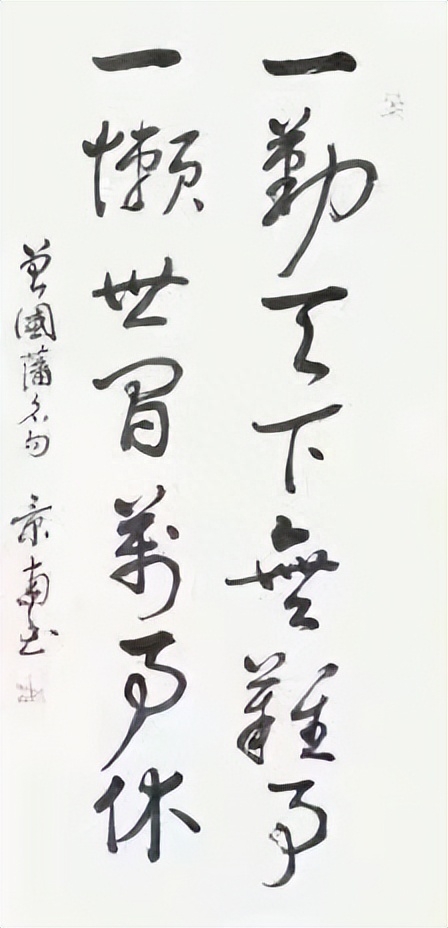 一勤天下無難事
一懶世間萬事休
曾國藩名句 景南书